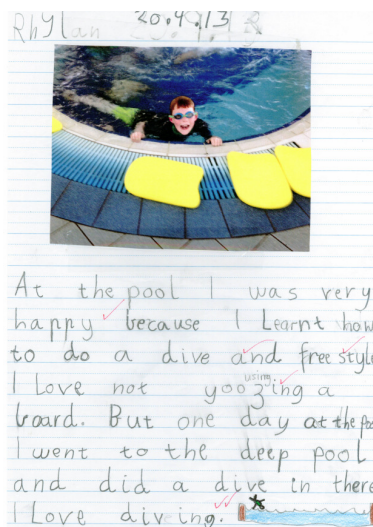 Rhylan 20.9.13 R
At the pool I was very
happy because I Learnt how
to do a dive and free style
I Love not yoozing a
using
board. But one day at the poo
I went to the deep pool
and did a dive in there
I Love diving.